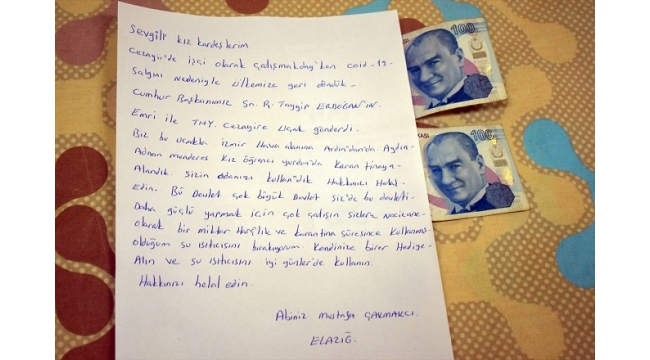 Sevgili kız kardeşlerim
Cezayir'de işçi olarak çalışmaktay'ken coid-19-
Salgını nedeniyle ülkemize geri döndük-
Cumhur Başkanımız Sn. R. Tayyip ERDOĞAN'IN.
Emri ile THY. Cezayire Uçak gönderdi.
Biz bu uçakla izmir Hava alanına Ardın'dan'da. Aydın-
Adnan menderes Kız öğrenci yurdun'da Karan tinaya-
Alandık. Sizin odanızı kullan'dık Hakkınızı Helal-
Edin. Bu Devlet çok büyük Devlet siz'de bu devleti-
Daha güçlü yapmak için çok çalışın sizlere nacizane-
olarak bir miktar Harçlık ve karantina süresince kullanmış-
olduğum su ısıtıcısını bırakıyorum. Kendinize birer Hediye-
Alın ve su ısıtıcısını iyi günler'de kullanın.
Hakkınızı helal edin.
Abiniz mustafa ÇAKMAKCI.
ELAZIĞ.
100
100